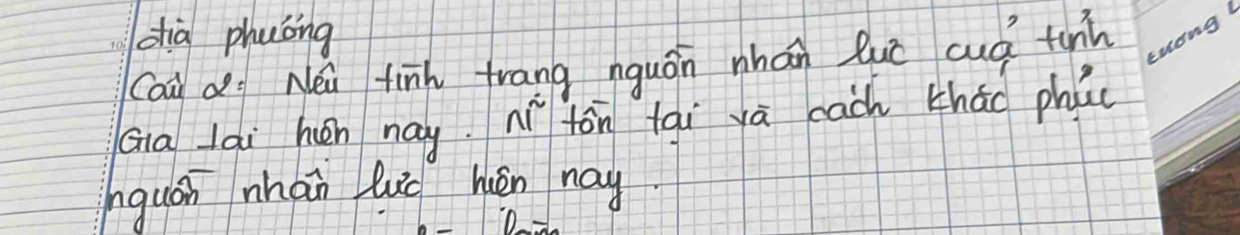 địa phương
Câu 2: Nêu tình trạng nguồn nhân lực của tỉnh
Gia Lai hiện nay. tồn tại và cách khắc phục
nguồn nhân lực hiện nay.